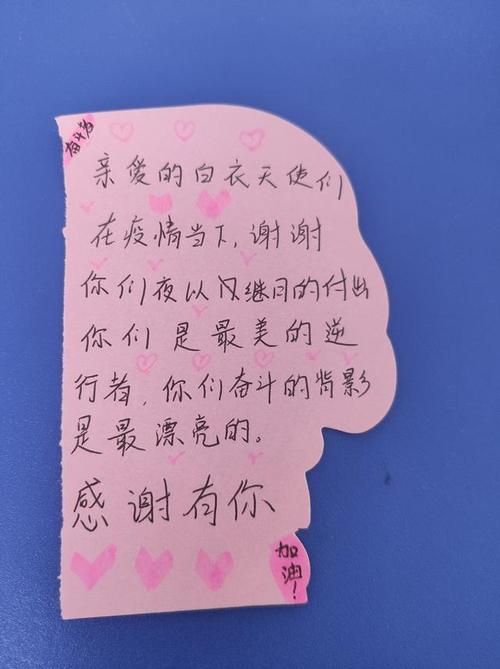 奋斗为
亲爱的白衣天使们
在疫情当下,谢谢
你们夜以继日的付出
你们是最美的逆
行者,你们奋斗的背影
是最漂亮的。
感谢有你
加油!